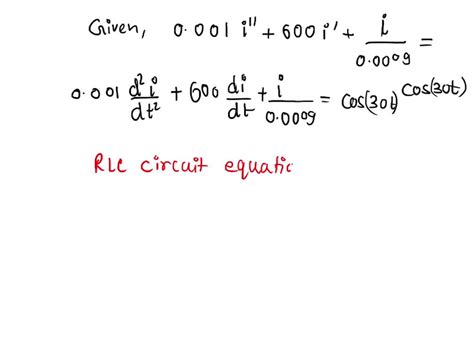 Given, 0.001 i'' + 600 i' + i/0.0009 = cos(30t)
0.001 d²i/dt² + 600 di/dt + i/0.0009 = cos(30t)
RLC circuit equatic